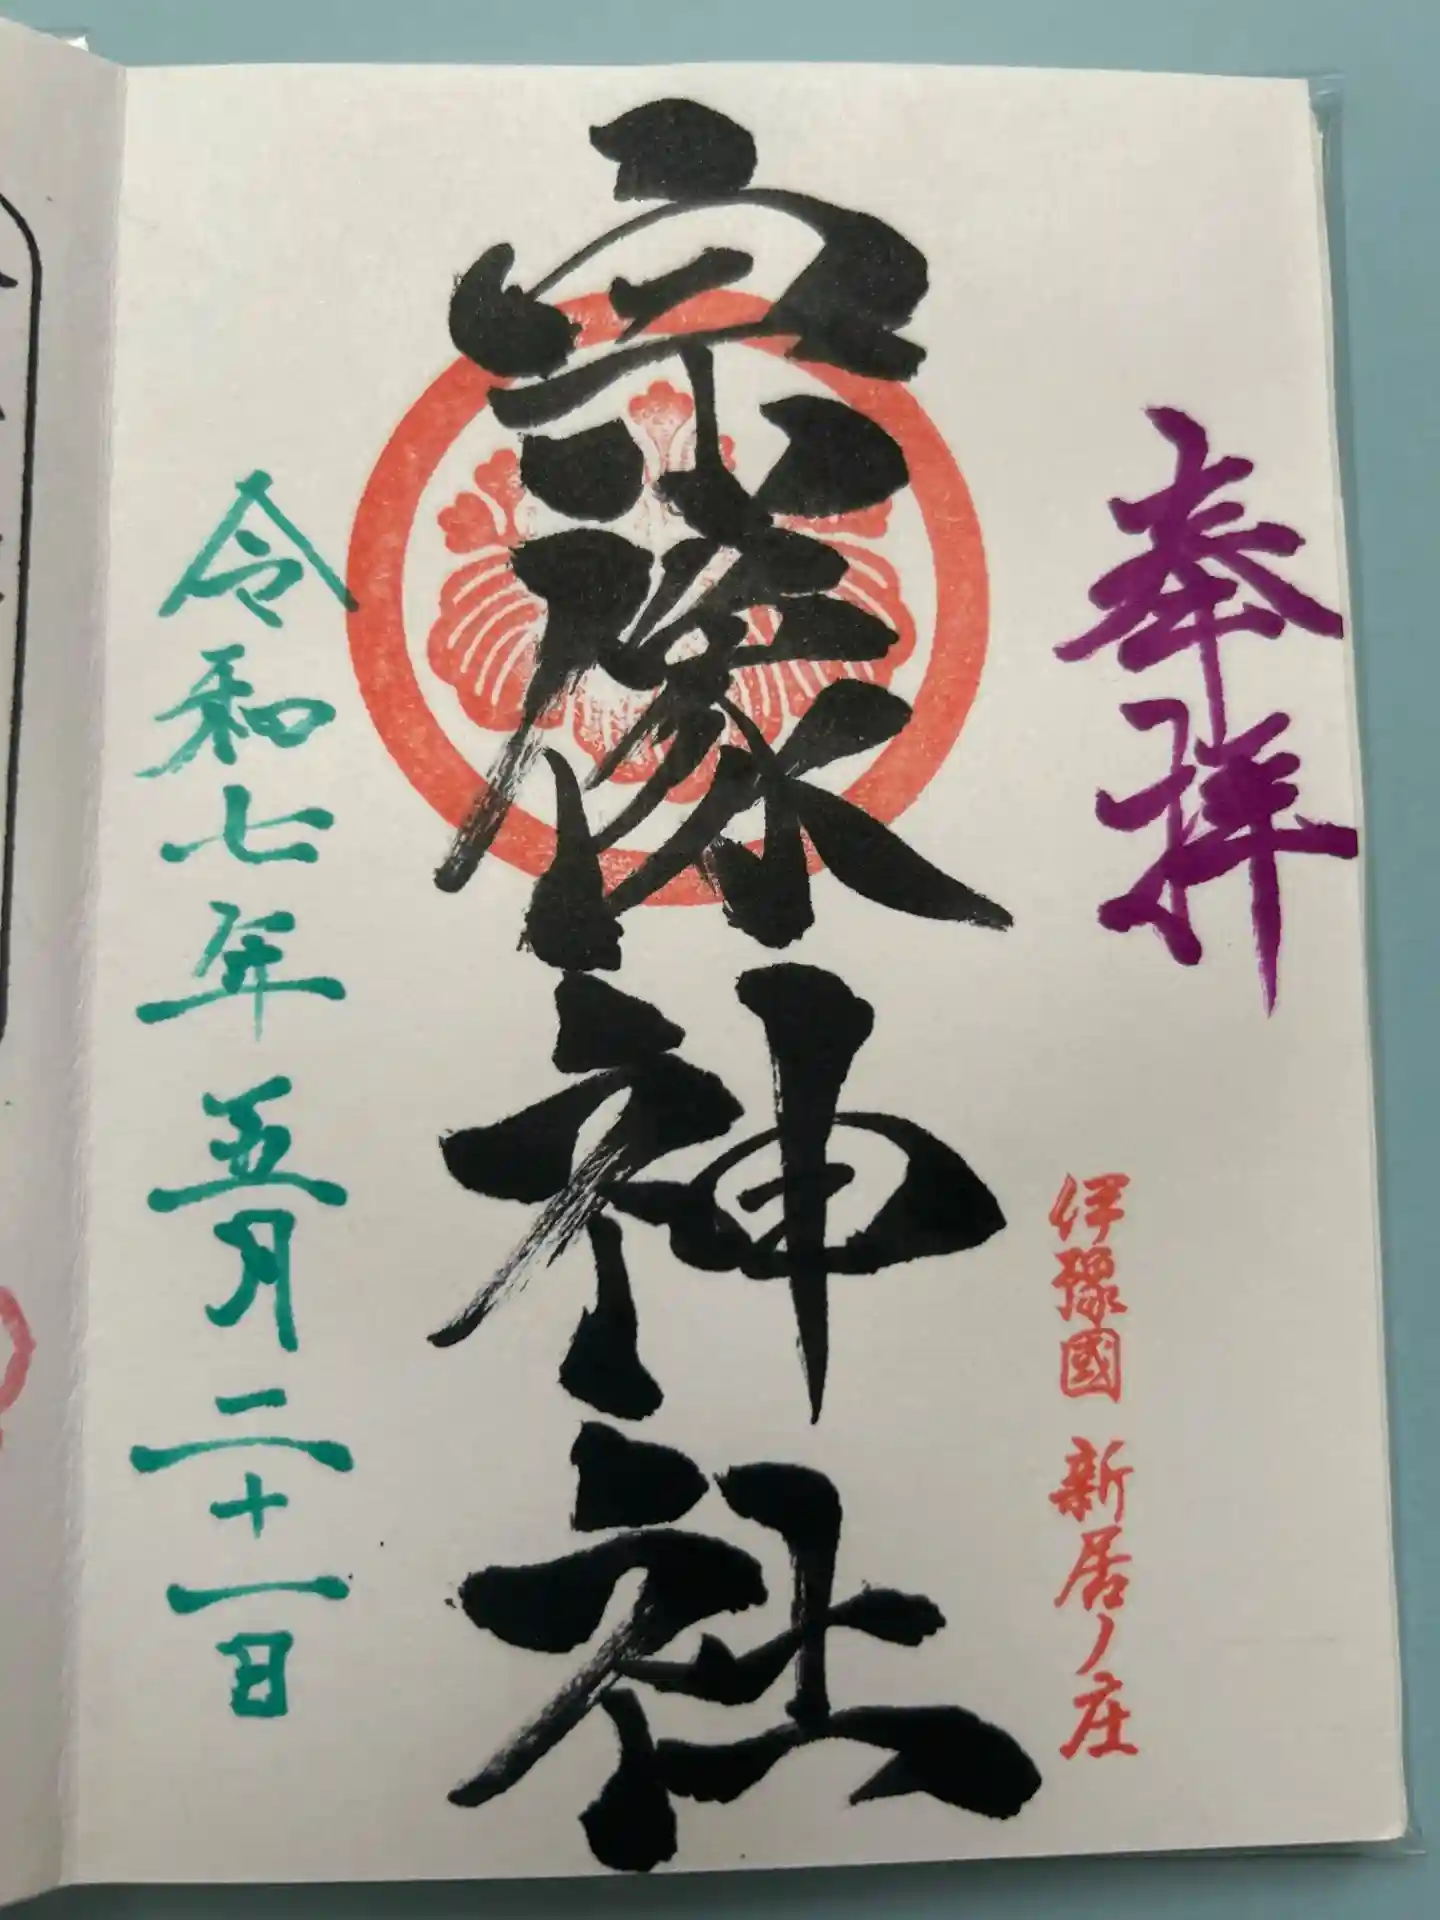 奉拝
伊豫國 新居ノ庄
宗像神社
令和七年五月二十一日